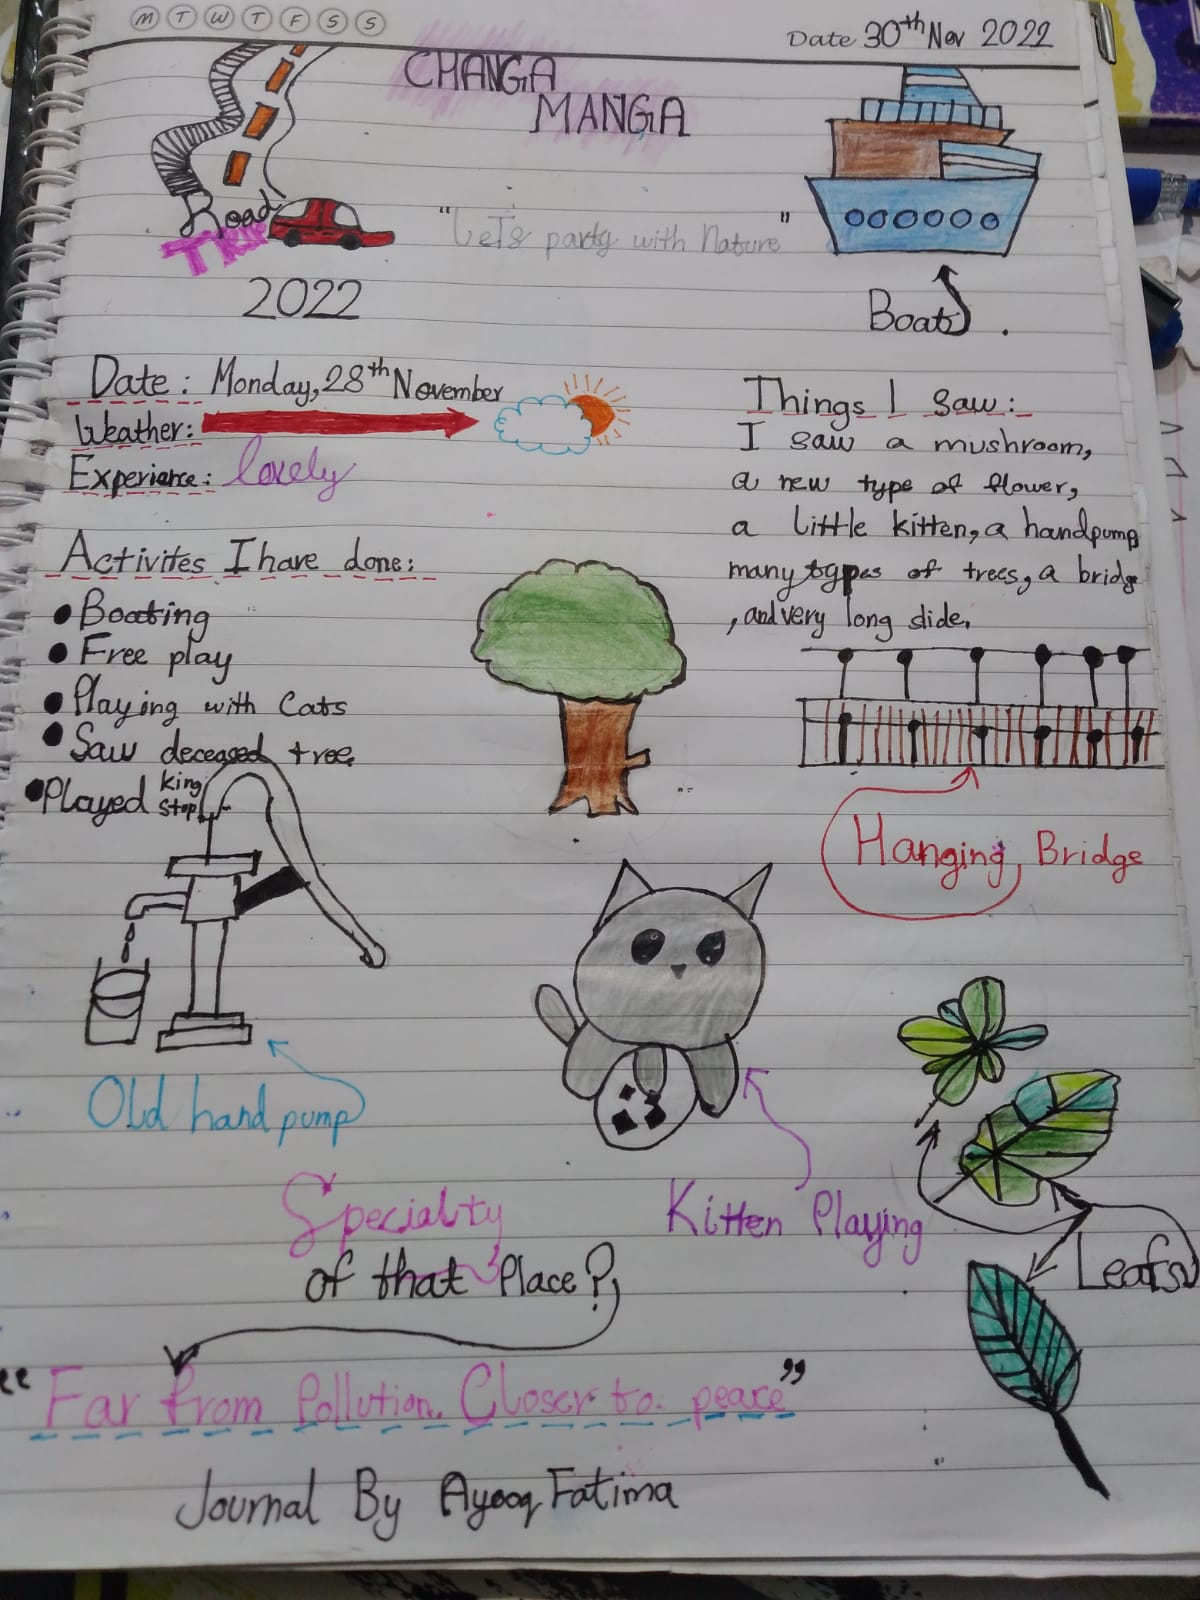 M T W T F S S
Date 30th Nov 2022
CHANGA
MANGA
Road
TRIP
2022
"Let's party with Nature"
Boat
Date: Monday, 28th November
Weather:
Experience: lovely
Activites I have done:
• Boating
• Free play
• Playing with Cats
• Saw deceased tree
• Played king stop
Things I saw:
I saw a mushroom,
a new type of flower,
a little kitten, a handpump
many types of trees, a bridge
, and very long slide.
Hanging Bridge
Old hand pump
Kitten Playing
Leafs
Specialty
of that Place?
"Far from Pollution. Closer to peace"
Journal By Fatima